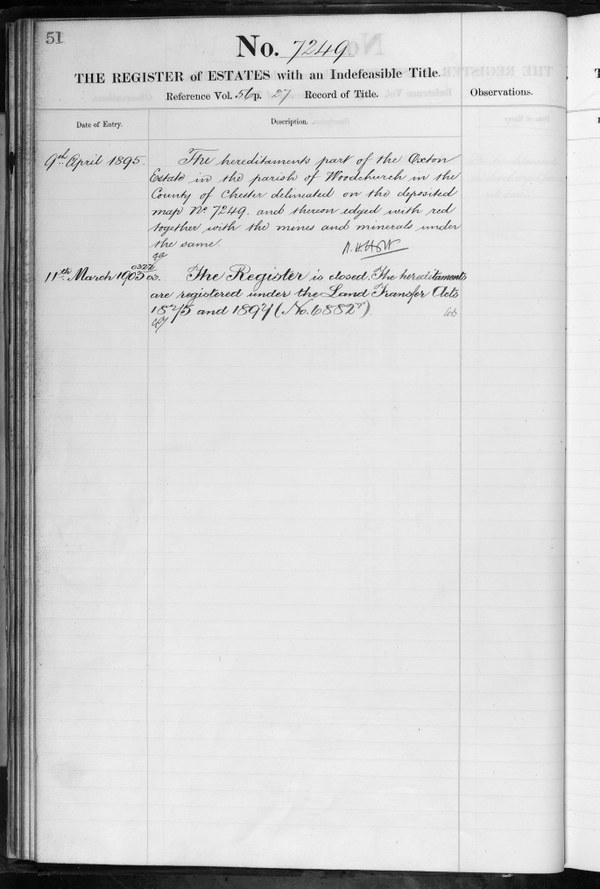 51
No. 7249
THE REGISTER of ESTATES with an Indefeasible Title.
Reference Vol. 56 p. 27 Record of Title.
Observations.
Date of Entry.
Description.
9th April 1895.
The hereditaments part of the Oxton
Estate in the parish of Woodchurch in the
County of Chester delineated on the deposited
map No. 7249. and thereon edged with red
together with the mines and minerals under
the same.
11th March 1903
The Register is closed. The hereditaments
are registered under the Land Transfer Acts
1875 and 1897 (No. 6882)